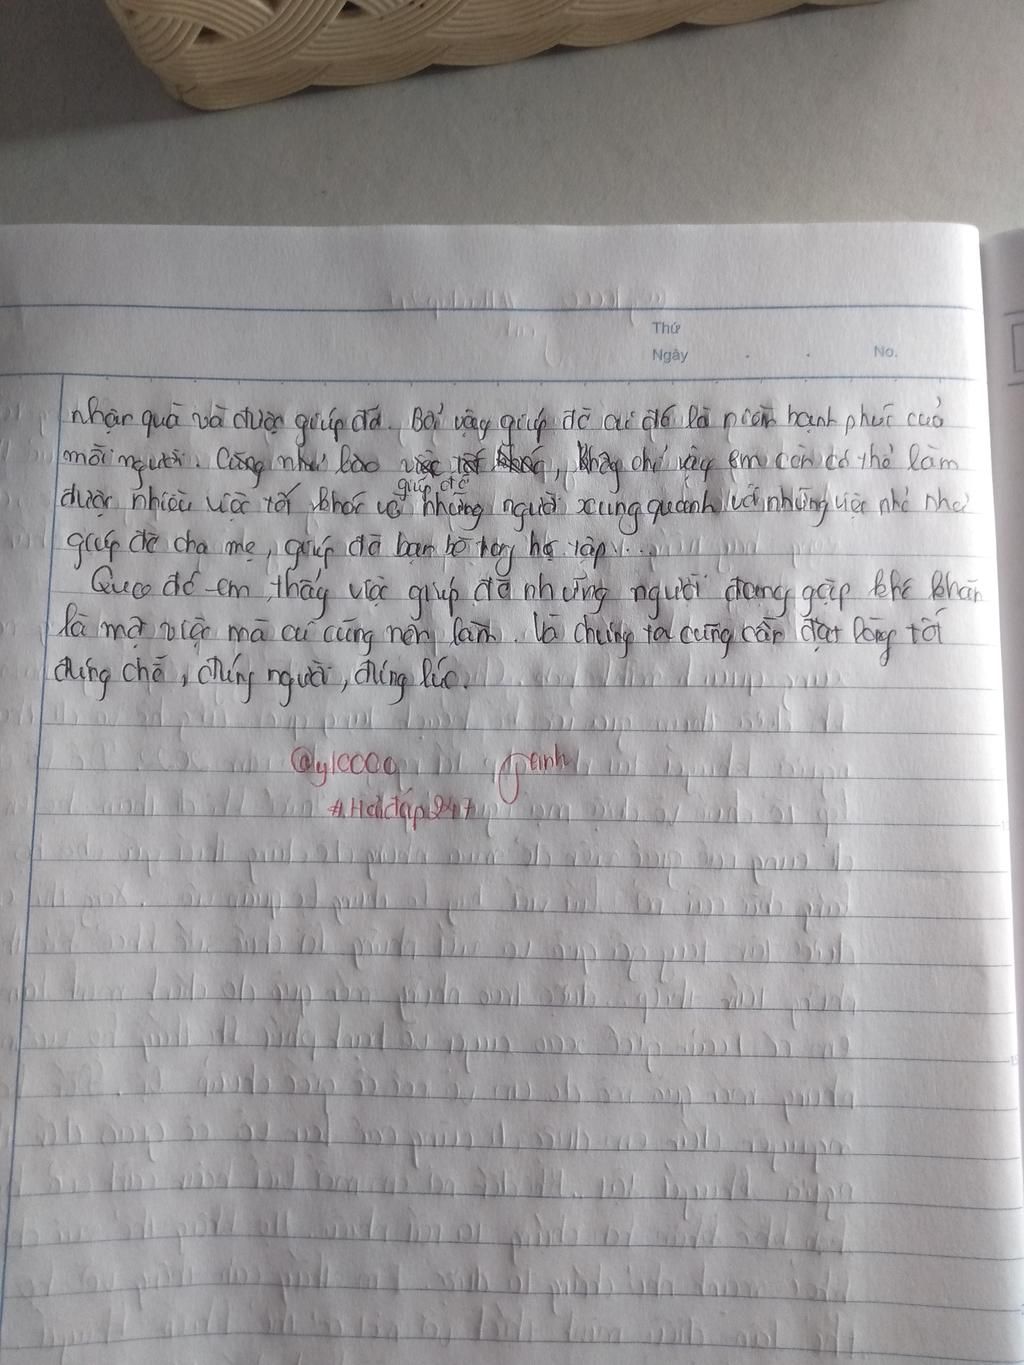 Thứ
Ngày . . No.
nhận quà và được giúp đỡ. Bởi vậy giúp đỡ ai đó là niềm hạnh phúc của
mỗi người. Cũng như lào việc tốt, không chỉ vậy em còn có thể làm
giúp đỡ
được nhiều việc tốt khác về những người xung quanh với những việc nhỏ như
giúp đỡ cha mẹ, giúp đỡ bạn bè trong học tập...
Qua đó em thấy việc giúp đỡ những người đang gặp khó khăn
là một việc mà ai cũng nên làm. Và chúng ta cũng cần đặt lòng tốt
đúng chỗ, đúng người, đúng lúc.
@yl0000 anh
#Hỏiđáp247